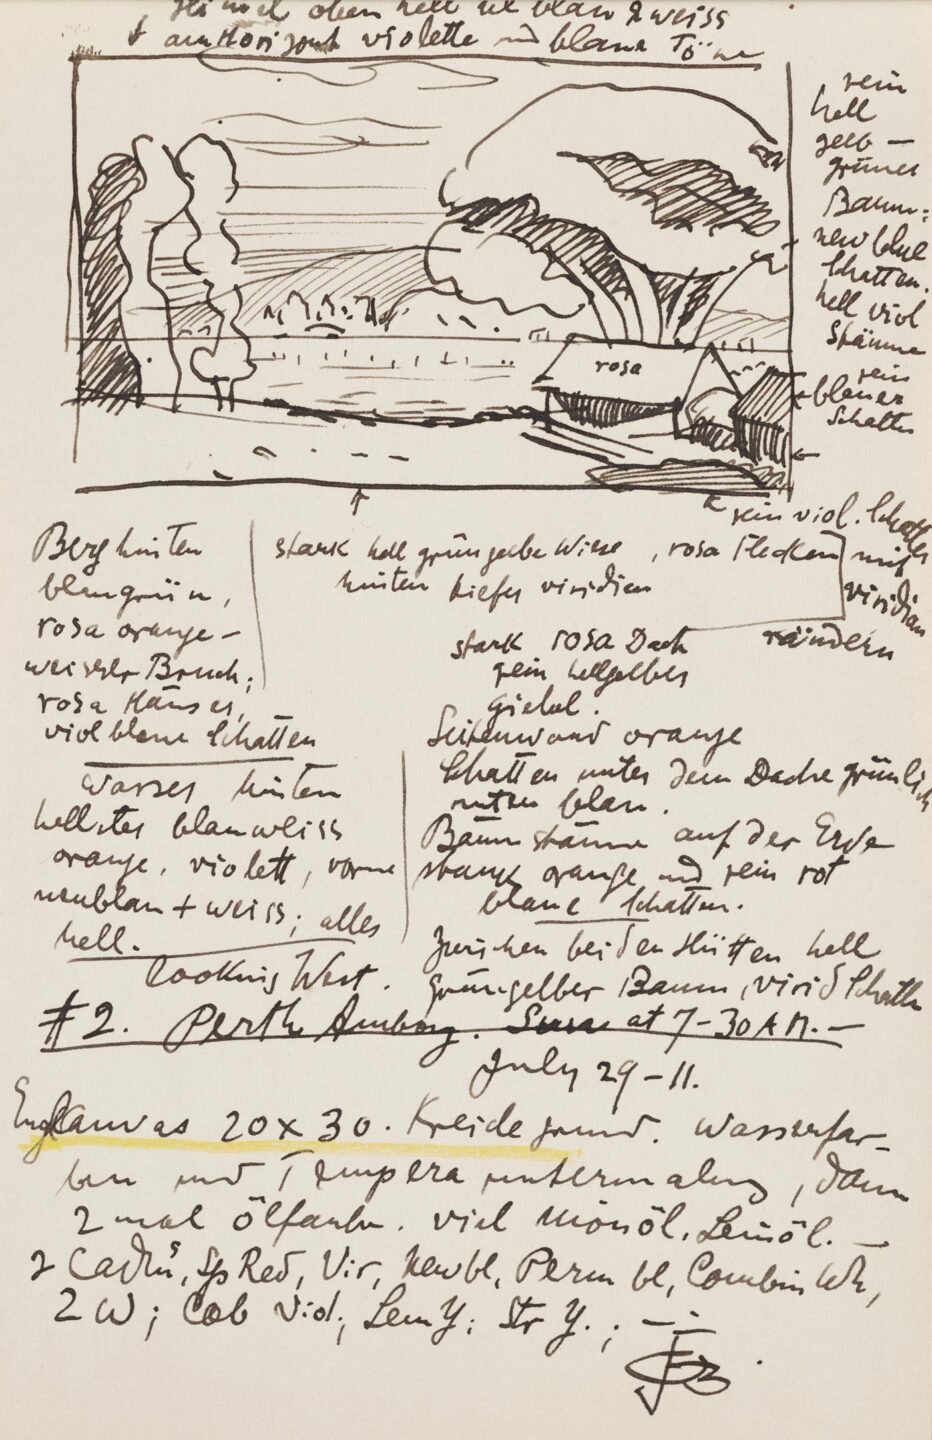 Himmel oben hell ul blau & weiss
+ am Horizont violette und blaue Töne
rein
hell
gelb —
grünes
Baum:
new blue
Schatten.
hell viol
stämme
rein
blaues
Schatten
rosa
rein viol. Schatten
mit
viridian
rändern
Berg hinten
blaugrün,
rosa orange —
weisser Bruch;
rosa Häuser,
viol blaue Schatten
stark hell grüngelbe Wiese, rosa Flecken
hinten tiefes viridian
stark rosa Dach
rein hellgelbes
giebel.
Seitenwand orange
Schatten unter dem Dache grünlich
unten blau.
Baumstämme auf der Erde
stark orange und rein rot
blaue Schatten.
Zwischen beiden Hütten hell
grün-gelber Baum, virid Schatten
Wasser hinten
hellstes blauweiss
orange, violett, vorne
neublau + weiss; alles
hell.
looking West.
#2. Perth Amboy. Sun at 7-30 A.M. —
July 29 - 11.
Engl Canvas 20 x 30. Kreidegrund. Wasserfar-
ben und Tempera untermalung, dann
2 mal ölfarbe. viel Mohnöl, Leinöl. —
2 Cadm's, Sp Red, Vir, Newbl, Perm bl, Combin Wh,
2 W; Cob Viol; Lem Y; Str Y.; — —